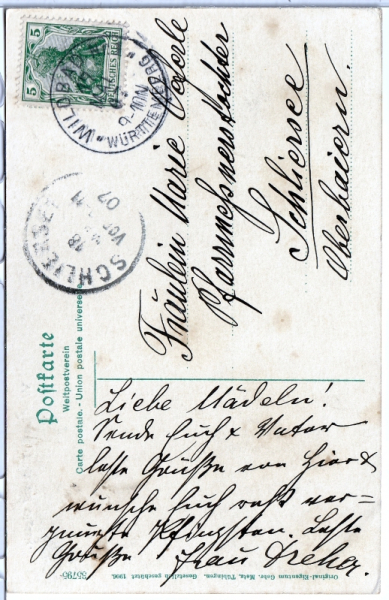 5
5
DEUTSCHES REICH
WILDBAD
9-10 N
WÜRTTEMBERG
SCHLIERSEE
18
Vor
07
Postkarte
Weltpostverein
Carte postale. - Union postale universelle
Fräulein Marie
Pfarrmeßnerstochter
Schliersee
Oberbaiern.
Liebe Mädeln!
Sende Euch & Vater
beste Grüße von Hier &
wünsche Euch recht ver-
gnügte Pfingsten. Beste
Grüße Frau
Original-Eigentum Gebr. Metz, Tübingen. Gesetzlich geschützt 1906.